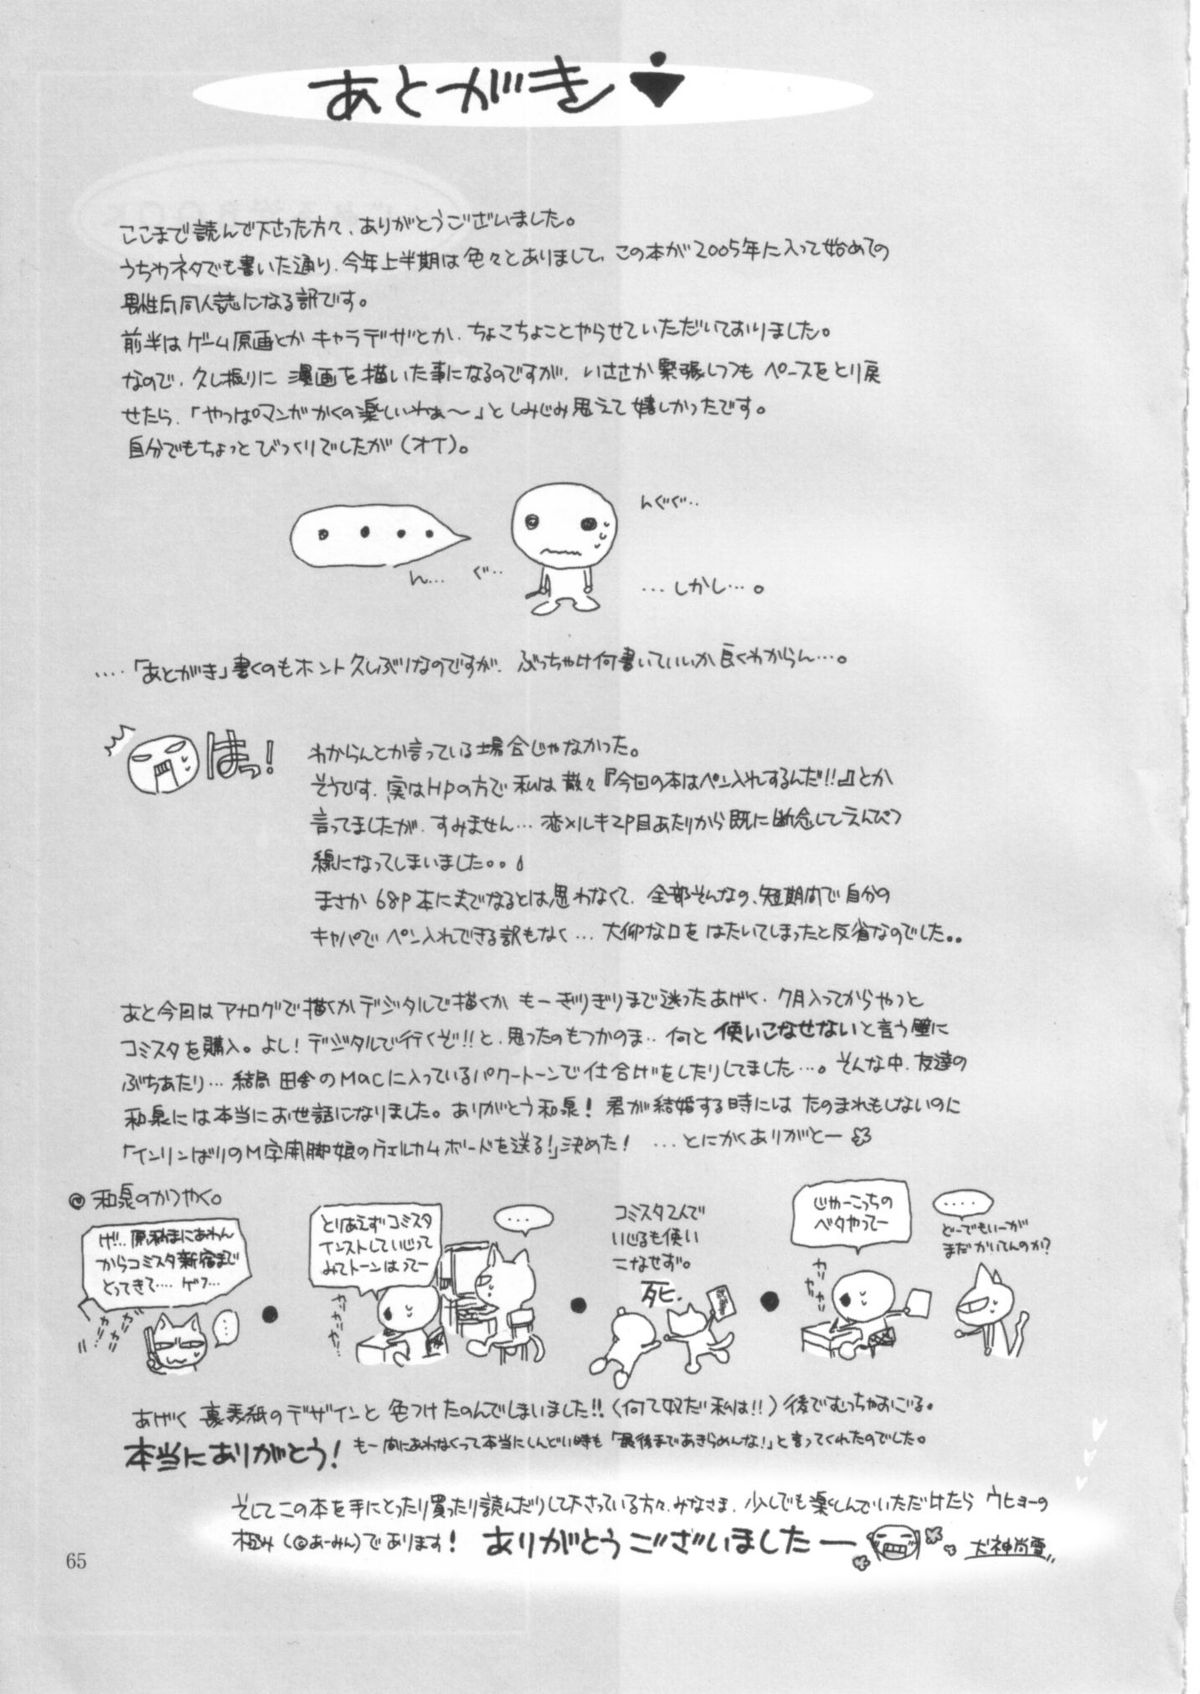 あとがき
ここまで読んで下さった方々、ありがとうございました。
うちわネタでも書いた通り、今年上半期は色々とありまして、この本が2005年に入って始めての
男性向同人誌になる訳です。
前半はゲーム原画とかキャラデザとか、ちょこちょことやらせていただいておりました。
なので、久し振りに漫画を描いた事になるのですが、いささか緊張しつつもペースをとり戻
せたら、「やっぱマンガかくの楽しいわぁ〜」としみじみ思えて嬉しかったです。
自分でもちょっとびっくりでしたが(オイ)。
んぐぐ‥
ん… ぐ‥
…しかし…。
‥‥「あとがき」書くのもホント久しぶりなのですが、ぶっちゃけ何書いていいか良くわからん…。
はっ!
わからんとか言っている場合じゃなかった。
そうです、実はHPの方で私は散々『今回の本はペン入れするんだ!!』とか
言ってましたが、すみません…恋×ルキ2P目あたりから既に断念してえんぴつ
線になってしまいました。。
まさか68P本にまでなるとは思わなくて、全部そんなの、短期間で自分の
キャパでペン入れできる訳もなく…大仰な口をはたいてしまったと反省なのでした。。
あと今回はアナログで描くかデジタルで描くかもーぎりぎりまで迷ったあげく、7月入ってからやっと
コミスタを購入。よし!デジタルで行くぞ!!と、思ったのもつかのま‥何と使いこなせないと言う壁に
ぶちあたり…結局田舎のMacに入っているパワートーンで仕上げをしたりしてました…。そんな中、友達の
和泉には本当にお世話になりました。ありがとう和泉!君が結婚する時にはたのまれもしないのに
「インリンばりのM字開脚娘のウェルカムボードを送る!」決めた!…とにかくありがとー
◎和泉のかつやく。
げ!!原稿まにあわん
からコミスタ新宿まで
とってきて‥‥ゲフ…
…
とりあえずコミスタ
インストしていじって
みてトーンはってー
…
コミスタ2人で
いじるも使い
こなせず。
死.
じゃーこっちの
ベタやってー
‥‥
どーでもいーが
まだかいてんのか?
あげく裏表紙のデザインと色つけたのんでしまいました!!(何て奴だ私は!!)後でむっちゃおごる。
本当にありがとう!もー間にあわなくって本当にしんどい時も「最後まであきらめんな!」と言ってくれたのでした。
そしてこの本を手にとったり買ったり読んだりして下さっている方々、みなさま、少しでも楽しんでいただけたらウヒョーの
極み(©あーみん)であります!ありがとうございましたー 犬神尚雪
65